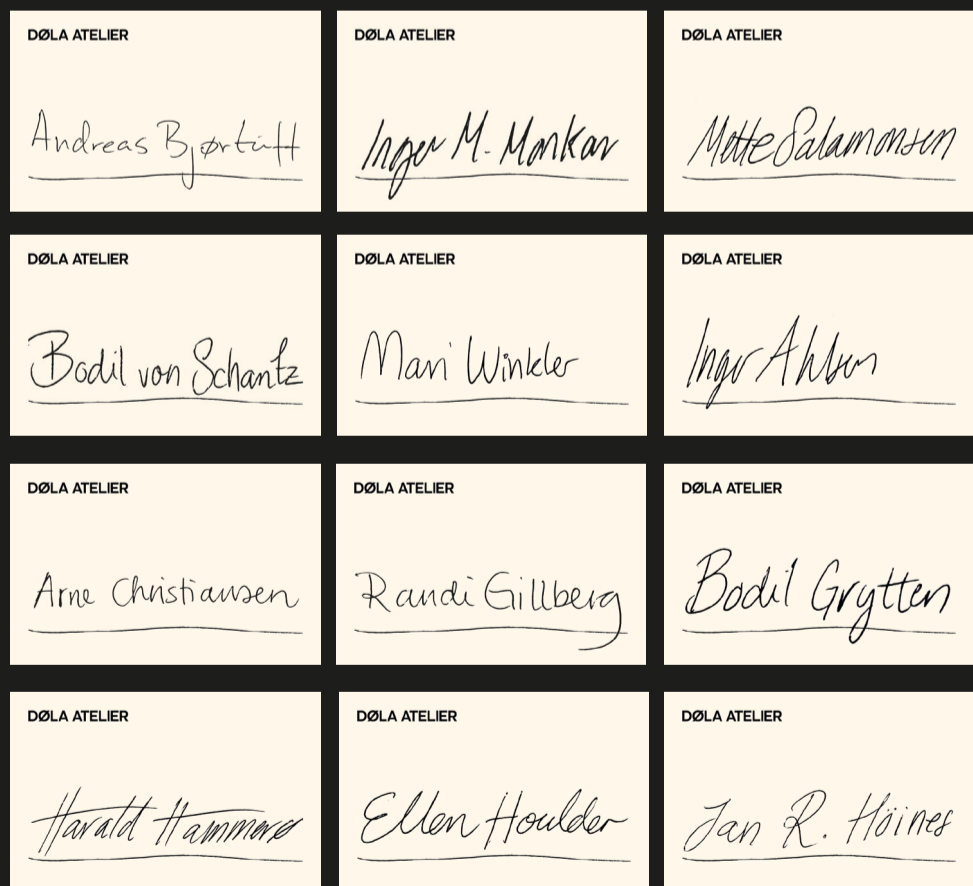 DØLA ATELIER
Andreas Bjørtuft
DØLA ATELIER
Inger M. Monkan
DØLA ATELIER
Mette Salamonsen
DØLA ATELIER
Bodil von Schantz
DØLA ATELIER
Mari Winkler
DØLA ATELIER
Inger Ahlsen
DØLA ATELIER
Arne Christiansen
DØLA ATELIER
Randi Gillberg
DØLA ATELIER
Bodil Grytten
DØLA ATELIER
Harald Hammerø
DØLA ATELIER
Ellen Houlder
DØLA ATELIER
Jan R. Höines